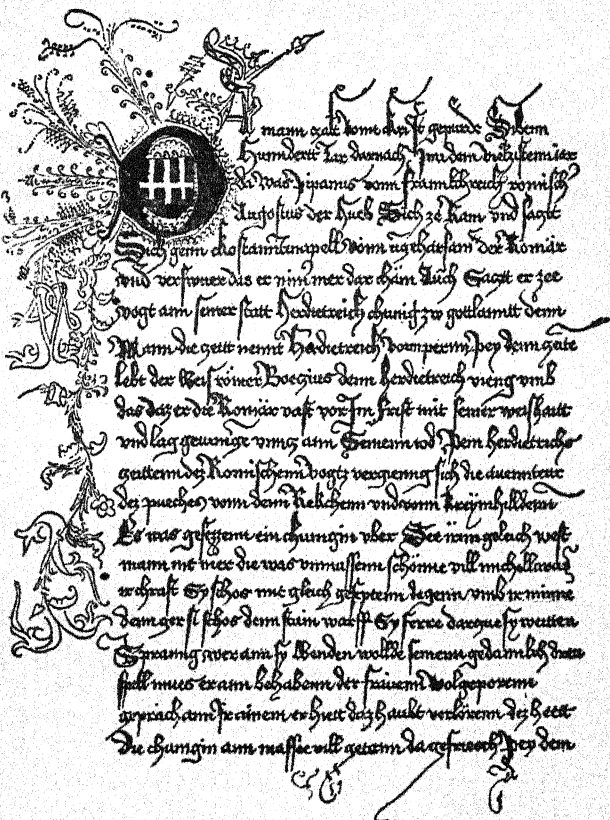 mann zalt vonn Cristi gepurde Sibenn
Hunndertt Jar darnach Jnn dem vierzistenn iar
da was Pipanus vonn Frannkchreich romisch
Augostus der Hueb Sich ze Ram vnd satzt
Sich genn Chostanntinapell vonn vngeharsam der Romär
vnd verswuer das er nimmer dar chäm Auch Saczt er zee
vogt ann seiner statt Herdietreich chunig zw gottlanntt denn
Mann die zeitt nennt Herdietreich vonn pernn Pey denn zeite
lebt der Weis römer Boezius denn Herdietreich vieng vmb
das daz er die Romär vast vor Im frist mit seiner weishaitt
vnd lag geuangen vnntz ann Seinenn tod Pein herdietrichs
zeittenn dez Romischenn vogtz vergienng sich die auenntewr
dez pueches vonn denn Rekchenn vnd vonn Kreymhilldenn
Es was gesezzenn ein chunigin vber See irnn geleich west
mann nie mer die was vnmassenn schönne vill michell was
ir chraft Sy schos mit gleich degenn vmb ir minne
denn ger si schos denn stain warff Sy ferre darnne sy weitten
Spranng wer ann sy Wenden wollde seinenn gedannkch drew
spill mues er ann behabenn der frawenn Wolgeporenn
geprach ann Jr ainem er hiett daz haubt verlorenn dez hett
Die chunigin ann massee vill getann da gefriesch Pey dem